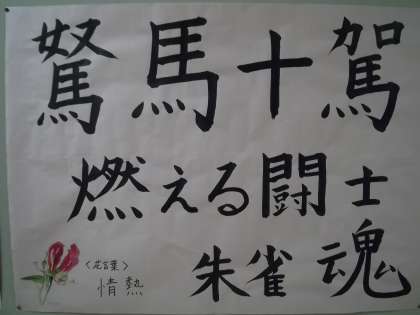 駑馬十駕
燃える闘士
朱雀魂
〈花言葉〉
情熱